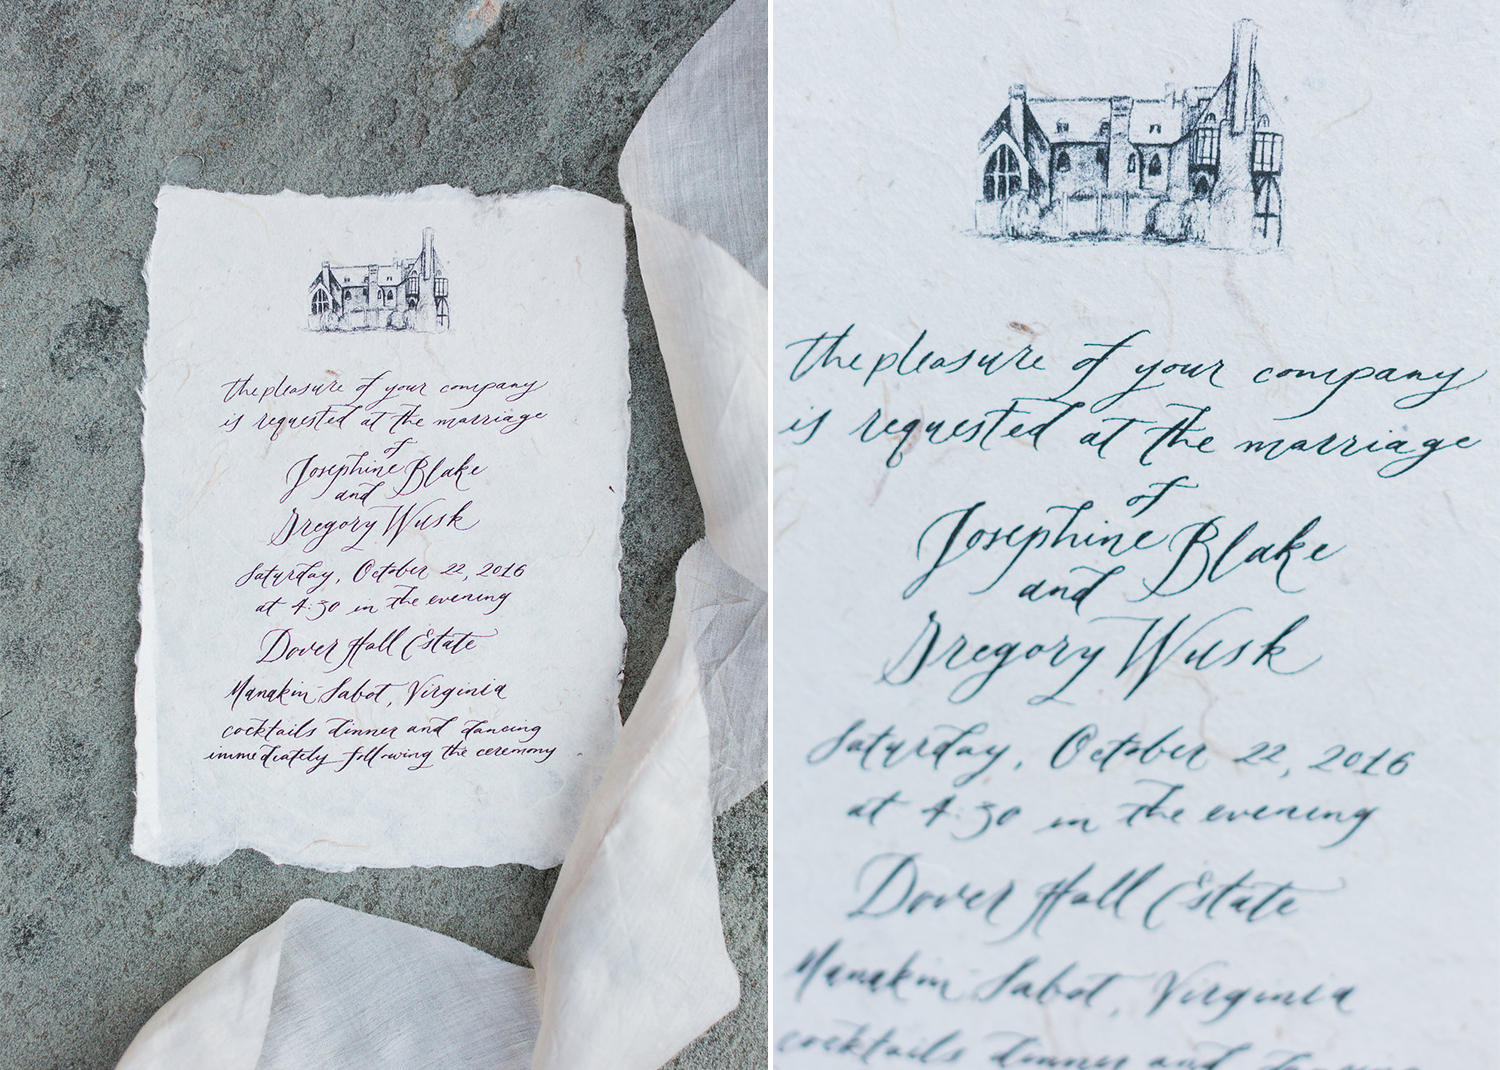 the pleasure of your company
is requested at the marriage
of
Josephine Blake
and
Gregory Wusk
Saturday, October 22, 2016
at 4:30 in the evening
Dover Hall Estate
Manakin Sabot, Virginia
cocktails dinner and dancing
immediately following the ceremony
the pleasure of your company
is requested at the marriage
of
Josephine Blake
and
Gregory Wusk
Saturday, October 22, 2016
at 4:30 in the evening
Dover Hall Estate
Manakin Sabot, Virginia
cocktails dinner and dancing